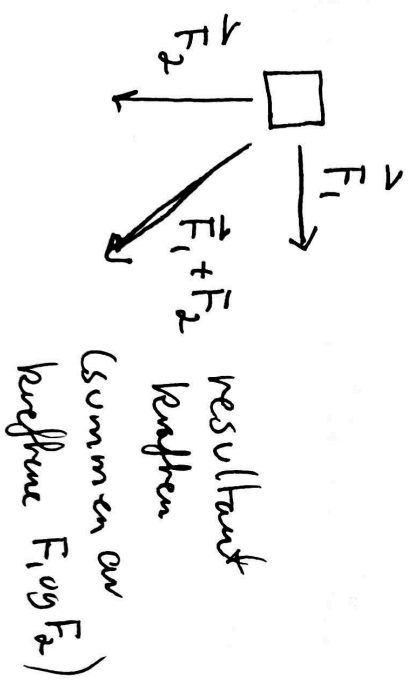 F⃗₁
F⃗₂
F⃗₁ + F⃗₂
resultant
kraften
(summen av
kreftene F₁ og F₂)